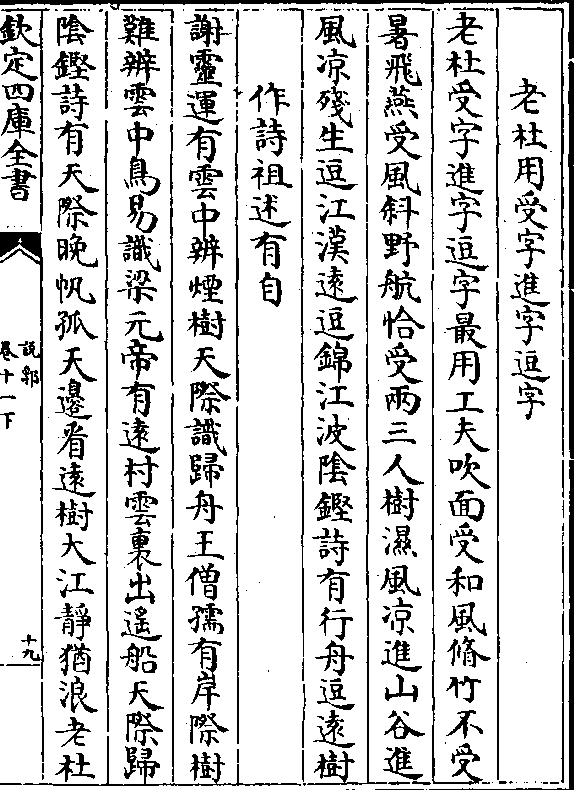 老杜用受字進字逗字
老杜受字進字逗字最用工夫吹面受和風脩竹不受
暑飛燕受風斜野航恰受兩三人樹濕風凉進山谷進
風凉殘生逗江漢遠逗錦江波陰鏗詩有行舟逗遠樹
作詩祖述有自
謝靈運有雲中辨煙樹天際識歸舟王僧孺有岸際樹
難辨雲中鳥易識梁元帝有遠村雲裏出遥船天際歸
陰鏗詩有天際晚帆孤天邊看遠樹大江靜猶浪老杜
欽定四庫全書
說郛
卷十一下
十九